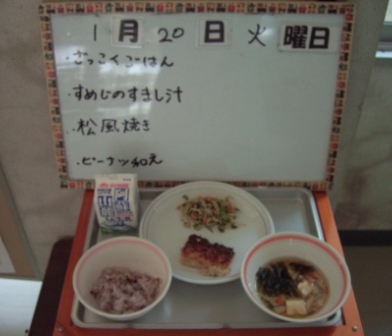 1月20日火曜日
・ざっこくごはん
・すめじのすまし汁
・松風焼き
・ピーナツ和え